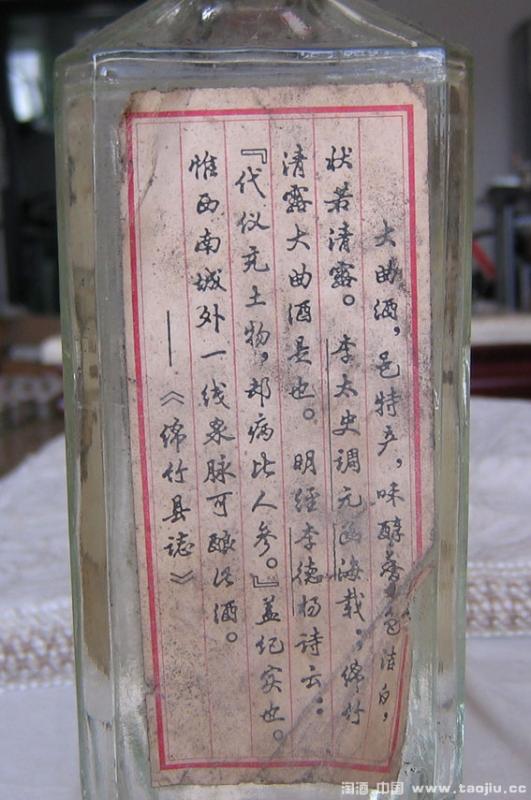 大曲酒，邑特产，味醇香，色洁白，
状若清露。李太史调元函海载：，绵竹
清露大曲酒是也。明经李德扬诗云：
『代仪充土物，却病比人参。』盖纪实也。
惟西南城外一线泉脉可酿此酒。
——《绵竹县誌》
淘酒 中国 www.taojiu.cc